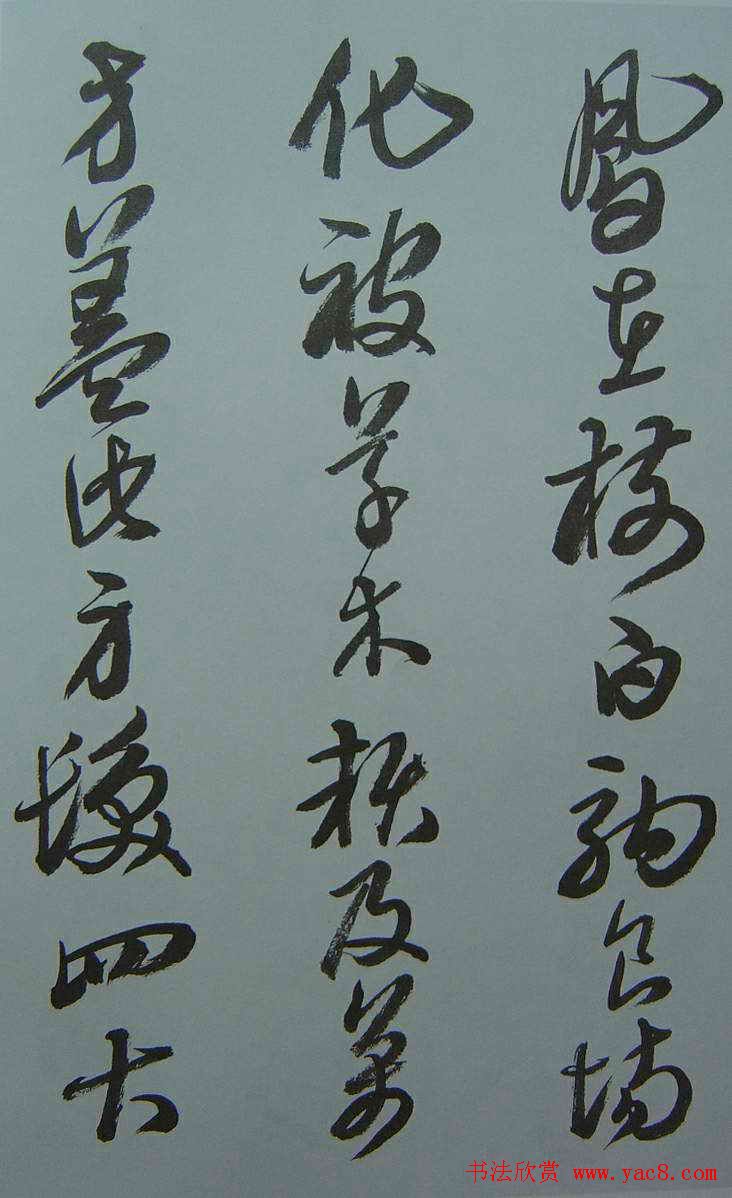 鳳在樹白駒食場
化被草木賴及萬
方蓋此身髮四大
书法欣赏 www.yac8.com